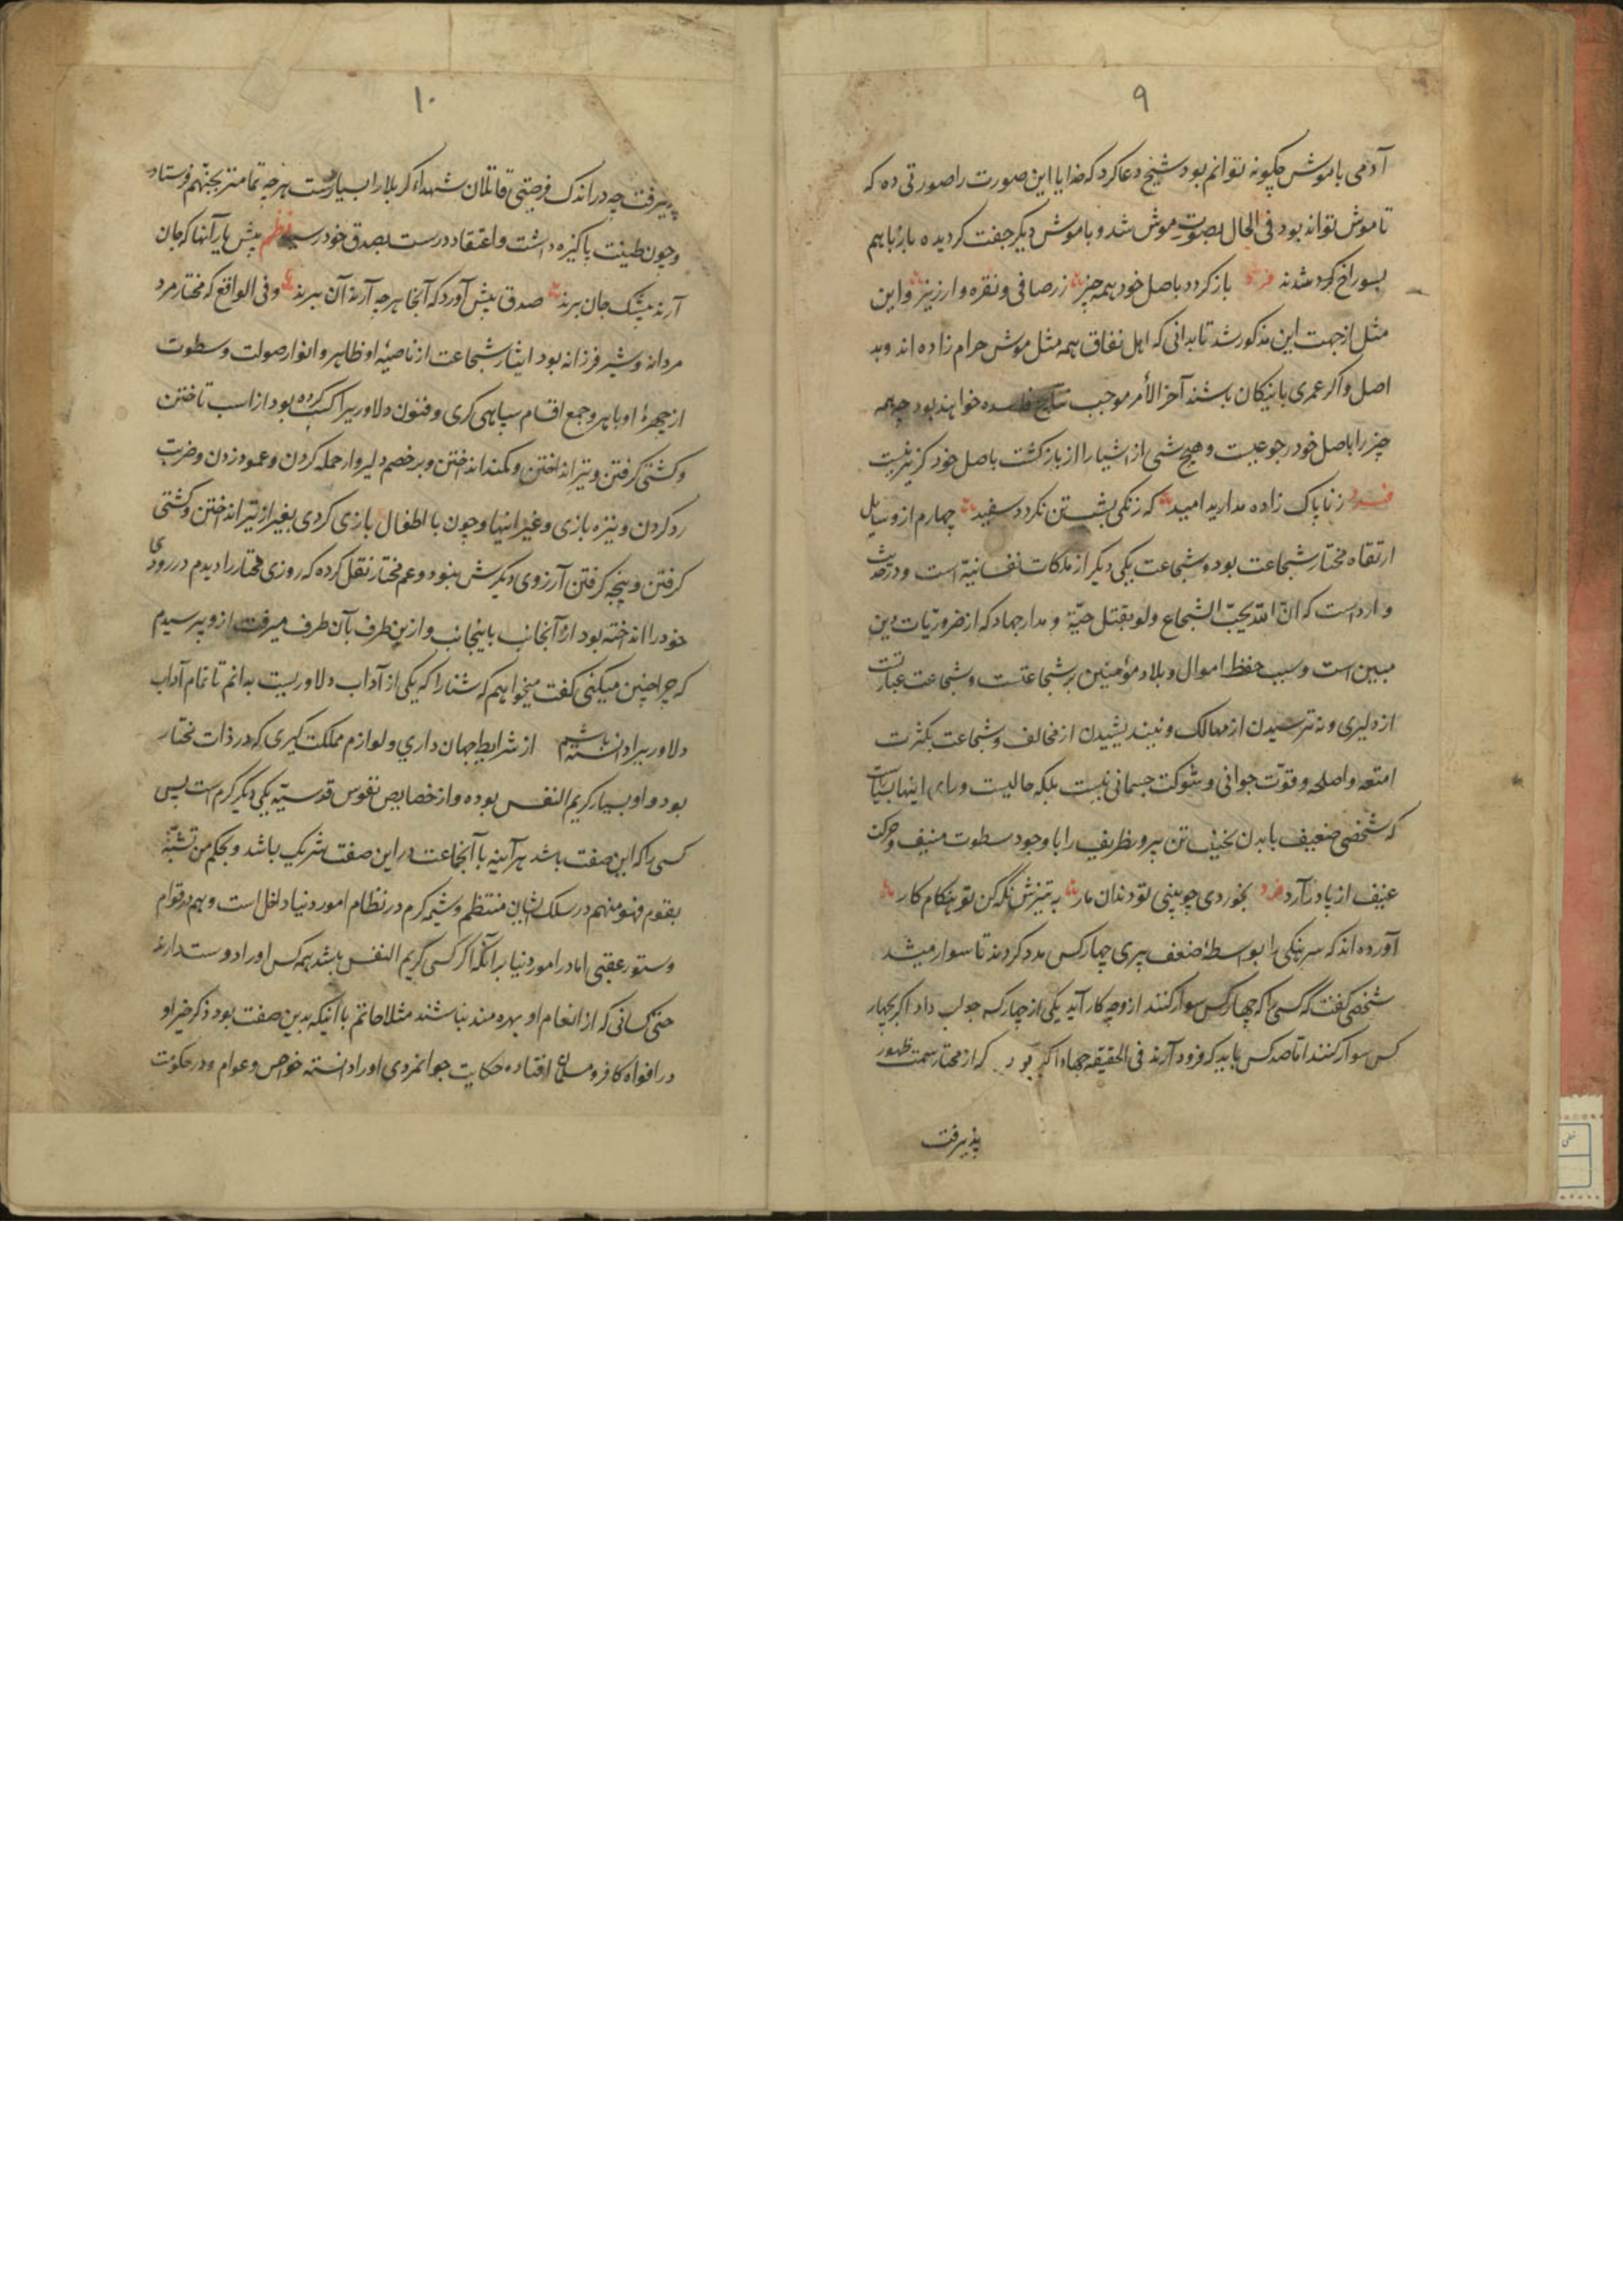 ۹
آدمی با موش چگونه توانم بود شیخ دعا کرد که خدایا این صورت را صورتی ده که
تا موش تواند بود فی الحال بصورت موش شد و با موش دیگر جفت کردیده باز با هم
بسوراخ کرد شدند فرد باز کردد باصل خود همه چیز زر صافی و نقره و ارزیز و این
مثل از جهت این مذکور شد تا بدانی که اهل نفاق همه مثل موش حرام زاده اند و بد
اصل و اکر عمری با نیکان باشند آخر الأمر موجب نتایج فاسده خواهند بود چه همه
چیز را باصل خود رجوعیست و هیچ شی از اشیا را از بازکشت باصل خود کزیر نیست
فرد ز ناپاک زاده مدارید امید که زنکی بشستن نکردد سفید چهارم از وسایل
ارتقاء مختار شجاعت بود و شجاعت یکی دیگر از ملکات نفسانیه است و در حدیث
وارداست که ان الله یحبّ الشجاع ولو بقتل حیّة و مدار جهاد که از ضروریات دین
مبین است و سبب حفظ اموال و بلاد مؤمنین بر شجاعتست و شجاعت عبارتست
از دلیری و نه ترسیدن از مهالک و نیندیشیدن از مخالف و شجاعت بکثرت
امتعه و اصلحه و قوّت جوانی و شوکت جسمانی نیست بلکه حالیست ورای اینها بسیاست
که شخصی ضعیف با بدن نحیف تن پرور ظریف را با وجود سطوت منیف و حرکت
عنیف از پا در آرد فرد بخوردی چو بینی تو دندان مار به تیزش نکه کن تو هنکام کار
آورده اند که سرهنکی را بواسطهٔ ضعف پیری چهار کس مدد کردند تا سوار میشد
شخصی کفت که کسی را که چهار کس سوار کنند از و چه کار آید یکی از چهار کس جواب داد اکر چهار
کس سوار کنند اما صد کس باید که فرود آرند فی الحقیقه جهاد اکبر بود که از مختار سمت ظهور
پذیرفت
۱۰
پذیرفت چه در اندک فرصتی قاتلان شهداء کربلا را بسیاست هر چه تمامتر بجهنم فرستاد
و چون طینت پاکیزه داشت و اعتقاد درست بصدق خود رسید نظم پیش یار آنها که جان
آرند بیشک جان برند صدق پیش آور که آنجا هر چه آرند آن برند و فی الواقع که مختار مرد
مردانه و شیر فرزانه بود ایثار شجاعت از ناصیهٔ او ظاهر و انوار صولت و سطوت
از چهرهٔ او باهر و جمع اقسام سپاهی کری و فنون دلاوریرا کسب کرده بود از اسب تاختن
و کشتی کرفتن و تیر انداختن و کمند انداختن و بر خصم دلیروار حمله کردن و عمود زدن و ضرب
رد کردن و نیزه بازی و غیر اینها و چون با اطفال بازی کردی بغیر از تیر انداختن و کشتی
کرفتن و پنجه کرفتن آرزوی دیکرش نبود و عم مختار نقل کرده که روزی مختار را دیدم در رودی
خود را انداخته بود از آنجانب باینجانب و ازین طرف بآن طرف میرفت از و پرسیدم
که چرا چنین میکنی کفت میخواهم که شنا را که یکی از آداب دلاوریست بدانم تا تمام آداب
دلاوریرا دانسته باشم از شرایط جهان داری و لوازم مملکت کیری که در ذات مختار
بود و او بسیار کریم النفس بوده و از خصایص نفوس قدسیّه یکی دیگر کرم است پس
کسی را که این صفت باشد هر آینه با آنجماعت در این صفت شریک باشد و بحکم من تشبّه
بقوم فهو منهم در سلک ایشان منتظم و شیمه کرم در نظام امور دنیا داخل است و هم در قوام
دستور عقبی اما در امور دنیا بر آنکه اکر کسی کریم النفس باشد همه کس او را دوست دارند
حتی کسانی که از انعام او بهره مند نباشند مثلا حاتم با اینکه بدین صفت بود ذکر خیر او
در افواه کافر و مسلمان افتاده حکایت جوانمردی او را دانسته خواص و عوام و در حکومت